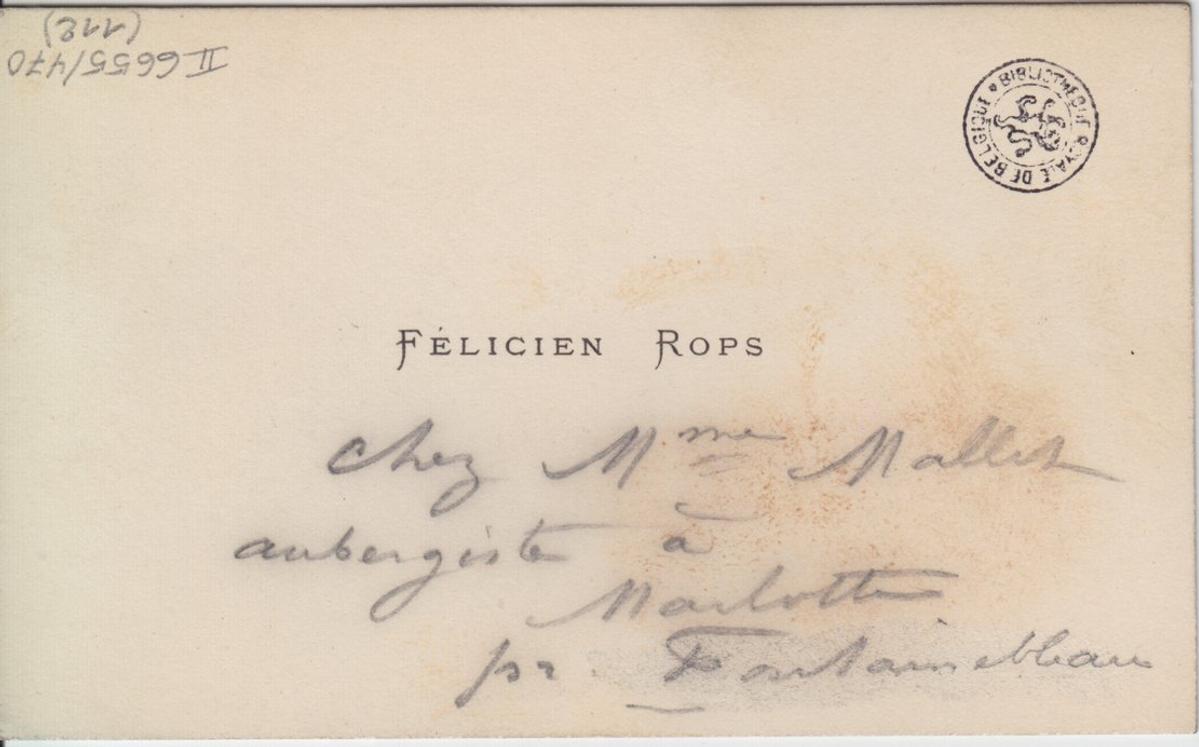 II 6655/470
(112)
BIBLIOTHÈQUE ROYALE DE BELGIQUE
FÉLICIEN ROPS
chez Mme Mallet
aubergiste à
Marlotte
pr. Fontainebleau